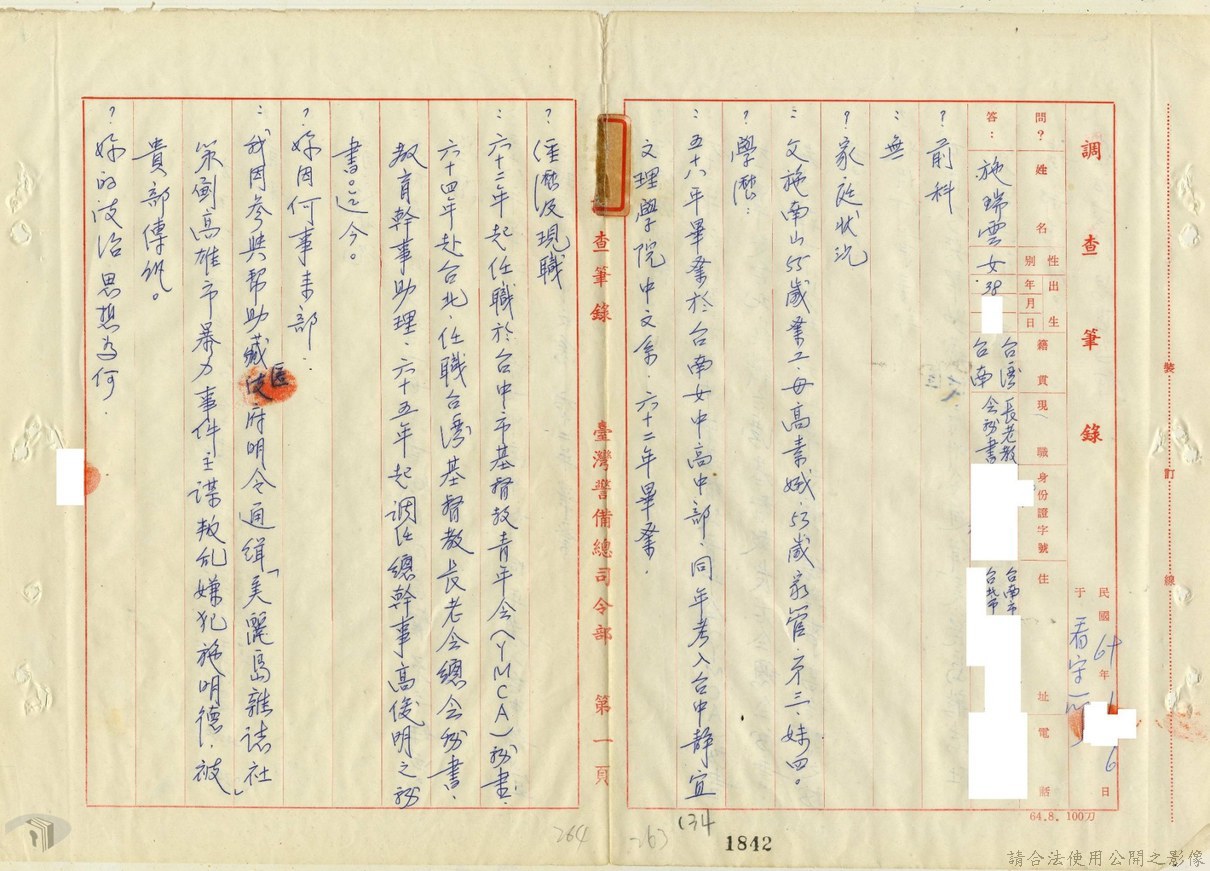 調查筆錄
民國69年
于看守所
6日
問?
姓名
性別
出生年月日
籍貫
現職
身份證字號
住址
電話
答:
施瑞雲
女
38.
台灣台南
長老教會秘書
台南市
台北市
?前科
:無
?家庭狀況
:父施南山55歲業工.母高素娥.53歲家管.弟三.妹四。
?學歷:
:五十八年畢業於台南女中高中部.同年考入台中靜宜
文理學院中文系.六十二年畢業.
64.8. 100刀
查筆錄
臺灣警備總司令部
第一頁
?經歷及現職
:六十二年起任職於台中市基督教青年会(YMCA)祕書.
六十四年赴台北.任職台灣基督教長老会總会祕書.
教育幹事助理.六十五年起調任總幹事高俊明之祕
書。迄今。
?妳因何事來部.
:我因參與幫助藏匿政府明令通緝「美麗島雜誌社」
策劃高雄市暴力事件主謀叛乱嫌犯施明德.被
貴部傳訊。
?妳的政治思想為何.
裝
訂
線
264
263
134
1842
請合法使用公開之影像